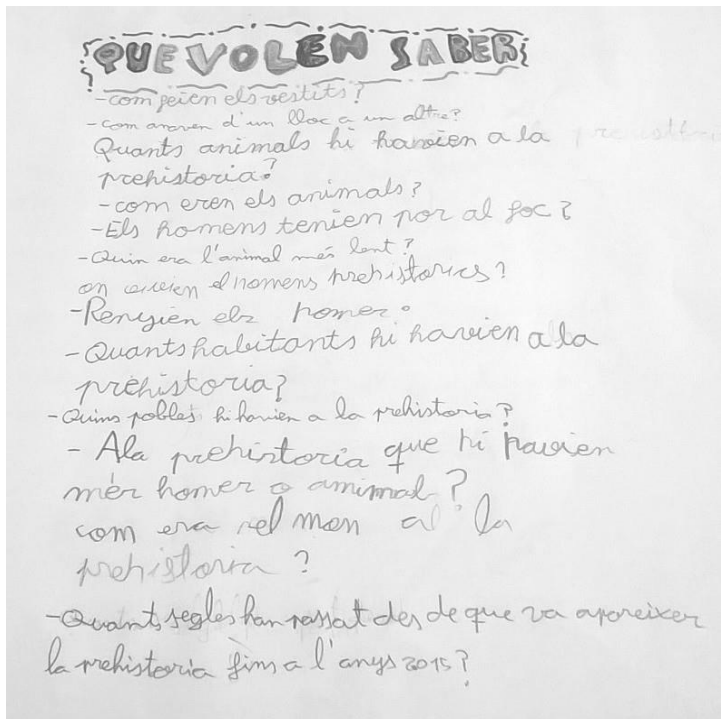 QUE VOLEN SABER
-com feien els vestits?
-com anaven d'un lloc a un altre?
Quants animals hi havien a la
prehistoria?
-com eren els animals?
-Els homens tenien por al foc?
-Quin era l'animal més lent?
on vivien prehistorics?
-Renyien els homes
-Quants habitants hi havien a la
prehistoria?
-Quins pobles hi havien a la prehistoria?
-Ala prehistoria que hi havien
més homes o animal?
com era el mon al la
prehistoria?
-Quants segles han passat des de que va apareixer
la prehistoria fins a l'anys 2015?